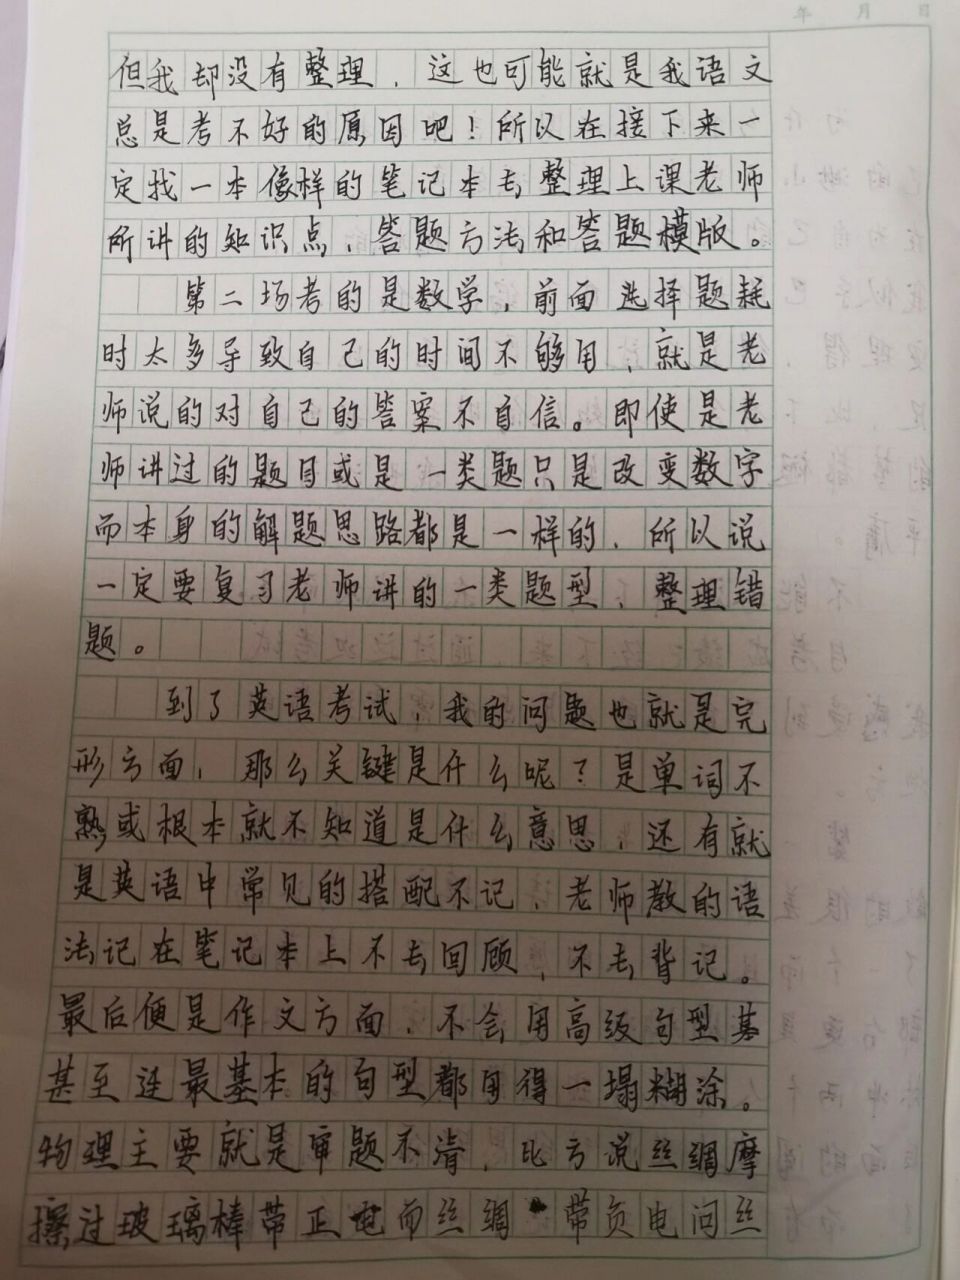 年 月 日
但我却没有整理，这也可能就是我语文
总是考不好的原因吧！所以在接下来一
定找一本像样的笔记本去整理上课老师
所讲的知识点、答题方法和答题模版。
第二场考的是数学，前面选择题耗
时太多导致自己的时间不够用，就是老
师说的对自己的答案不自信。即使是老
师讲过的题目或是一类题只是改变数字
而本身的解题思路都是一样的，所以说
一定要复习老师讲的一类题型、整理错
题。
到了英语考试，我的问题也就是完
形方面，那么关键是什么呢？是单词不
熟或根本就不知道是什么意思，还有就
是英语中常见的搭配不记，老师教的语
法记在笔记本上不去回顾，不去背记。
最后便是作文方面，不会用高级句型基
甚至连最基本的句型都用得一塌糊涂。
物理主要就是审题不清，比方说丝绸摩
擦过玻璃棒带正电而丝绸带负电问丝